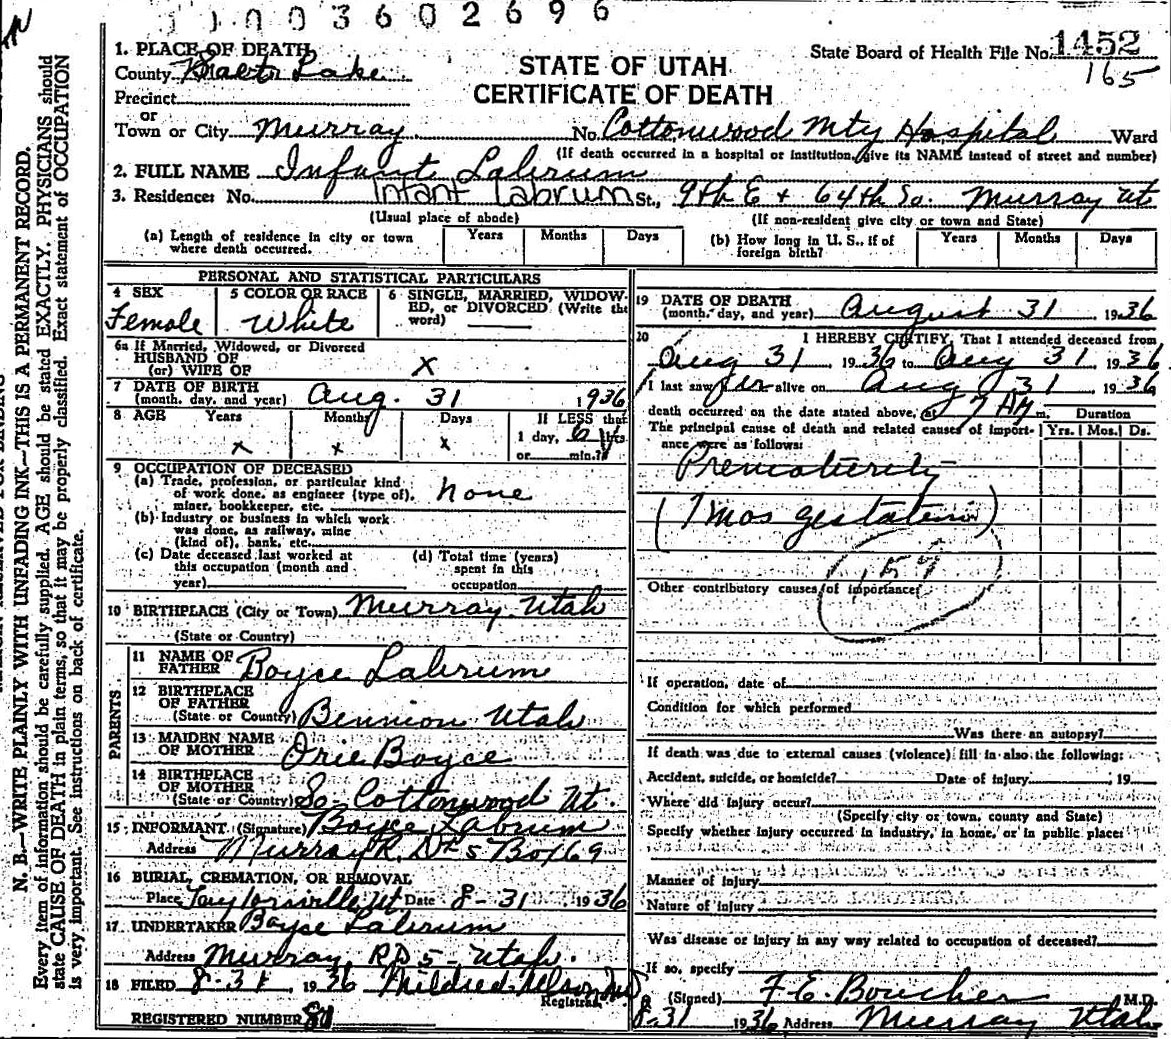 1003602696
1. PLACE OF DEATH
County Salt Lake
Precinct
or
Town or City Murray No. Cottonwood Mty Hospital Ward
(If death occurred in a hospital or institution, give its NAME instead of street and number)
STATE OF UTAH
CERTIFICATE OF DEATH
State Board of Health File No. 1452
165
2. FULL NAME Infant Labrum
Infant Labrum
3. Residence: No. St., 9th E + 64th So. Murray Ut
(Usual place of abode) (If non-resident give city or town and State)
(a) Length of residence in city or town where death occurred. Years Months Days
(b) How long in U. S., if of foreign birth? Years Months Days
PERSONAL AND STATISTICAL PARTICULARS
4 SEX Female
5 COLOR OR RACE White
6 SINGLE, MARRIED, WIDOWED, or DIVORCED (Write the word)
6a If Married, Widowed, or Divorced
HUSBAND OF
(or) WIFE OF X
7 DATE OF BIRTH
(month, day, and year) Aug. 31 1936
8 AGE Years Months Days If LESS than
x x x 1 day, 6 hrs.
or min.?
9 OCCUPATION OF DECEASED
(a) Trade, profession, or particular kind
of work done, as engineer (type of), none
miner, bookkeeper, etc.
(b) Industry or business in which work
was done, as railway, mine
(kind of), bank, etc.
(c) Date deceased last worked at
this occupation (month and
year)
(d) Total time (years)
spent in this
occupation
10 BIRTHPLACE (City or Town) Murray Utah
(State or Country)
PARENTS
11 NAME OF
FATHER Boyce Labrum
12 BIRTHPLACE
OF FATHER
(State or Country) Bennion Utah
13 MAIDEN NAME
OF MOTHER Orie Boyce
14 BIRTHPLACE
OF MOTHER
(State or Country) So. Cottonwood Ut.
15 INFORMANT (Signature) Boyce Labrum
Address Murray R. D #5 Box 69
16 BURIAL, CREMATION, OR REMOVAL
Place Taylorsville Ut Date 8-31 1936
17 UNDERTAKER Boyce Labrum
Address Murray RD 5 - Utah.
18 FILED 8-31 1936 Mildred Nelson
Registrar
REGISTERED NUMBER 80
19 DATE OF DEATH
(month, day, and year) August 31 1936
20 I HEREBY CERTIFY, That I attended deceased from
Aug 31 1936 to Aug 31 1936
I last saw her alive on Aug 31 1936
death occurred on the date stated above, at 7 AM m.
Duration
The principal cause of death and related causes of importance were as follows: Yrs. Mos. Ds.
Prematurity
(7 mos gestation)
159
Other contributory causes of importance:
If operation, date of
Condition for which performed
Was there an autopsy?
If death was due to external causes (violence) fill in also the following:
Accident, suicide, or homicide? Date of injury 19
Where did injury occur?
(Specify city or town, county and State)
Specify whether injury occurred in industry, in home, or in public place:
Manner of injury
Nature of injury
Was disease or injury in any way related to occupation of deceased?
If so, specify
(Signed) F. E. Boucher M.D.
8-31 1936 Address Murray Utah
N. B.—WRITE PLAINLY WITH UNFADING INK—THIS IS A PERMANENT RECORD.
Every item of information should be carefully supplied. AGE should be stated EXACTLY. PHYSICIANS should
state CAUSE OF DEATH in plain terms, so that it may be properly classified. Exact statement of OCCUPATION
is very important. See instructions on back of certificate.